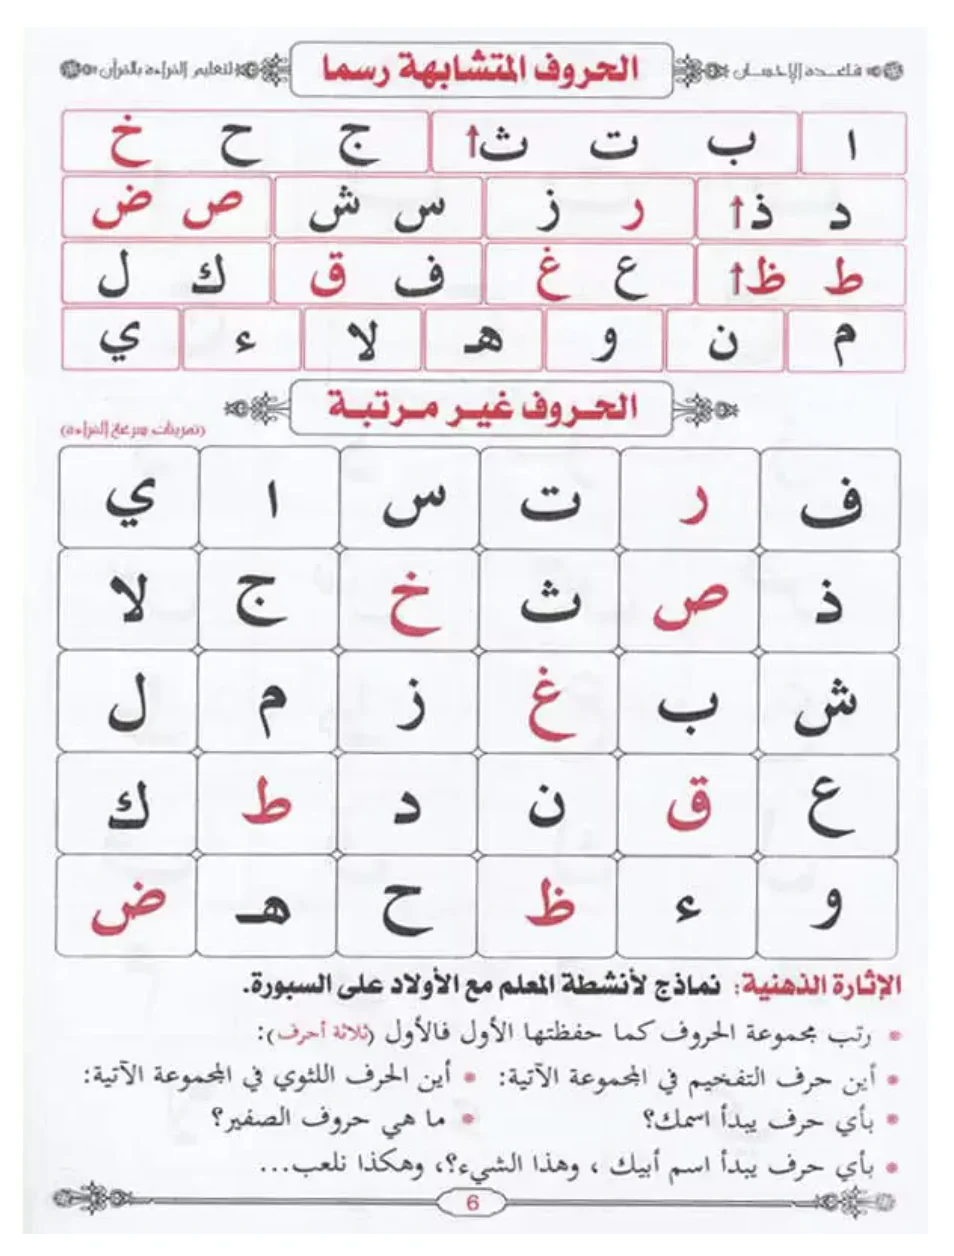 قاعدة الإحسان
الحروف المتشابهة رسما
لتعليم القراءة بالقرآن
ا ب ت ث↑ ج ح خ
د ذ↑ ر ز س ش ص ض
ط ظ↑ ع غ ف ق ك ل
م ن و هـ لا ء ي
الحروف غير مرتبة
(تمرينات سرعة القراءة)
ف ر ت س ا ي
ذ ص ث خ ج لا
ش ب غ ز م ل
ع ق ن د ط ك
و ء ظ ح هـ ض
الإثارة الذهنية: نماذج لأنشطة المعلم مع الأولاد على السبورة.
* رتب مجموعة الحروف كما حفظتها الأول فالأول (ثلاثة أحرف):
* أين حرف التفخيم في المجموعة الآتية: * أين الحرف اللثوي في المجموعة الآتية:
* بأي حرف يبدأ اسمك؟ * ما هي حروف الصفير؟
* بأي حرف يبدأ اسم أبيك ، وهذا الشيء؟، وهكذا نلعب...
6